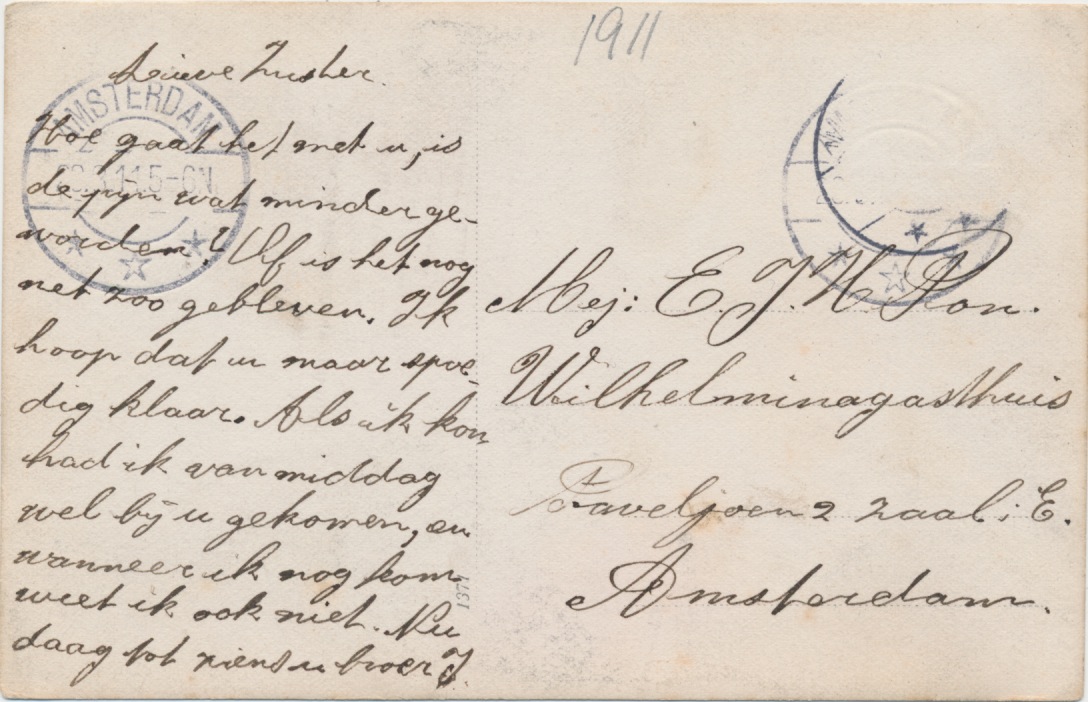 1911
Lieve Zuster.
AMSTERDAM
Hoe gaat het met u, is
de pyn wat minder ge-
worden? Of is het nog
net zoo gebleven. Ik
hoop dat u maar spoe-
dig klaar. Als ik kon
had ik van middag
wel bij u gekomen, en
wanneer ik nog kom
weet ik ook niet. Nu
daag tot ziens u broer J.
1377
Mej: E. J. H Pon.
Wilhelminagasthuis
Paveljoen 2 zaal: E.
Amsterdam.